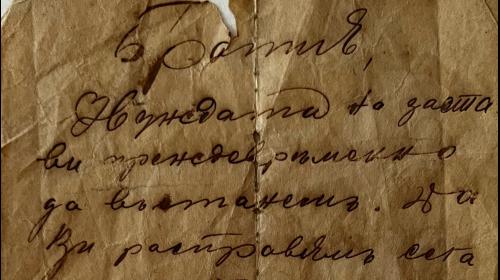 Братия,
Нуждата на заста
ви преждевременно
да въстанемъ. Да
Ви расправямъ сега